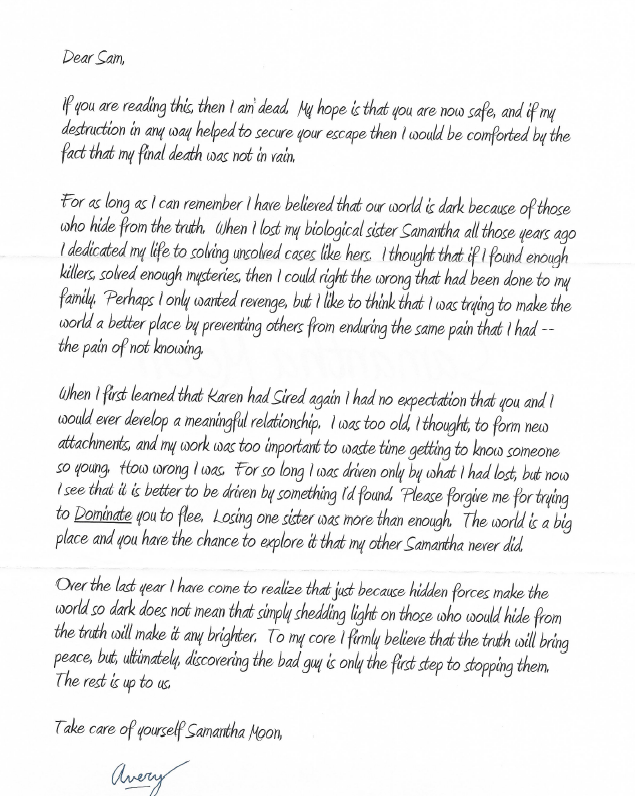 Dear Sam,
If you are reading this, then I am dead. My hope is that you are now safe, and if my
destruction in any way helped to secure your escape then I would be comforted by the
fact that my final death was not in vain.
For as long as I can remember I have believed that our world is dark because of those
who hide from the truth. When I lost my biological sister Samantha all those years ago
I dedicated my life to solving unsolved cases like hers. I thought that if I found enough
killers, solved enough mysteries, then I could right the wrong that had been done to my
family. Perhaps I only wanted revenge, but I like to think that I was trying to make the
world a better place by preventing others from enduring the same pain that I had --
the pain of not knowing.
When I first learned that Karen had Sired again I had no expectation that you and I
would ever develop a meaningful relationship. I was too old, I thought, to form new
attachments, and my work was too important to waste time getting to know someone
so young. How wrong I was. For so long I was driven only by what I had lost, but now
I see that it is better to be driven by something I'd found. Please forgive me for trying
to Dominate you to flee. Losing one sister was more than enough. The world is a big
place and you have the chance to explore it that my other Samantha never did.
Over the last year I have come to realize that just because hidden forces make the
world so dark does not mean that simply shedding light on those who would hide from
the truth will make it any brighter. To my core I firmly believe that the truth will bring
peace, but, ultimately, discovering the bad guy is only the first step to stopping them.
The rest is up to us.
Take care of yourself Samantha Moon,
Avery